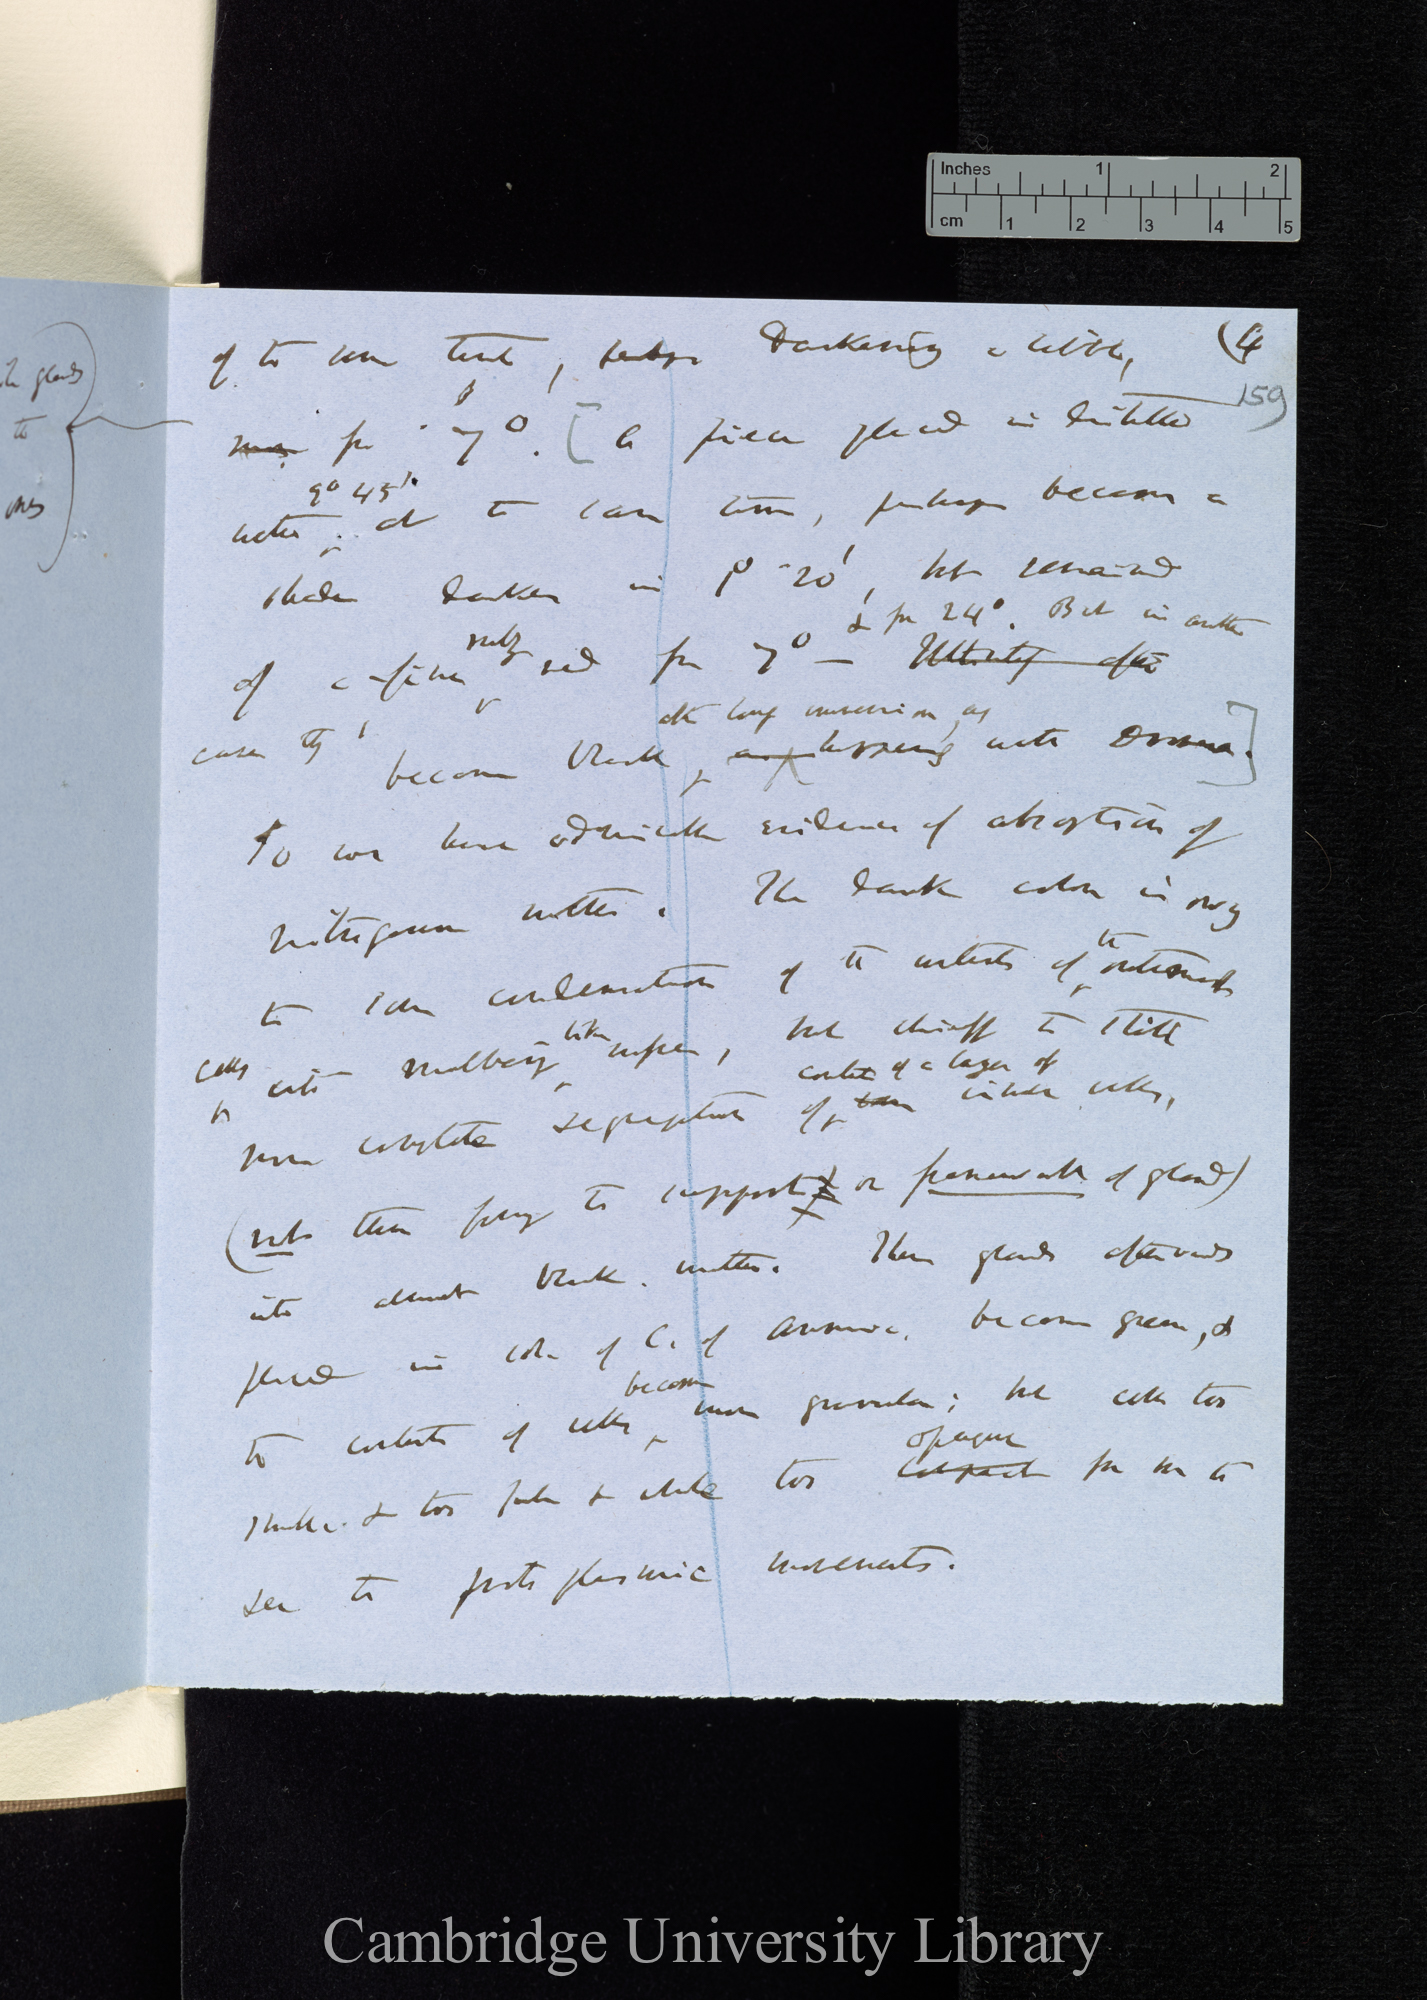 Inches 1 2
cm 1 2 3 4 5
(4
159
glands
to
ones
of the same tint, perhaps darkening a little,
for 7°. [A piece placed in distilled
9° 45'
water, at the same time, perhaps became a
shade darker in 1° 20', but remained
& for 24°. But in another
of a fine ruby red for 7° — Ultimately after
after long immersion, as
case they become black, happens with Drosera.]
So we have admirable evidence of absorption of
nitrogenous matter. The dark colour is owing
to some condensation of the contents of the outermost
cells into mulberry like masses, but chiefly to still
contents of a layer of
more complete segregation of inner cells,
(not those forming the support or framework of gland)
into almost black matter. These glands afterwards
placed in sol. of C. of ammonia. become green, &
become
the contents of cells, more granular; but cells too
opaque
small & too pale & whole too compact for me to
see the protoplasmic movements.
Cambridge University Library